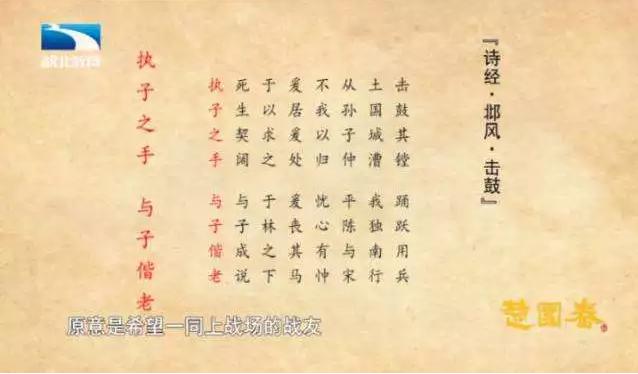 湖北教育
『诗经·邶风·击鼓』
击鼓其镗 踊跃用兵
土国城漕 我独南行
从孙子仲 平陈与宋
不我以归 忧心有忡
爰居爰处 爰丧其马
于以求之 于林之下
死生契阔 与子成说
执子之手 与子偕老
执子之手 与子偕老
原意是希望一同上战场的战友